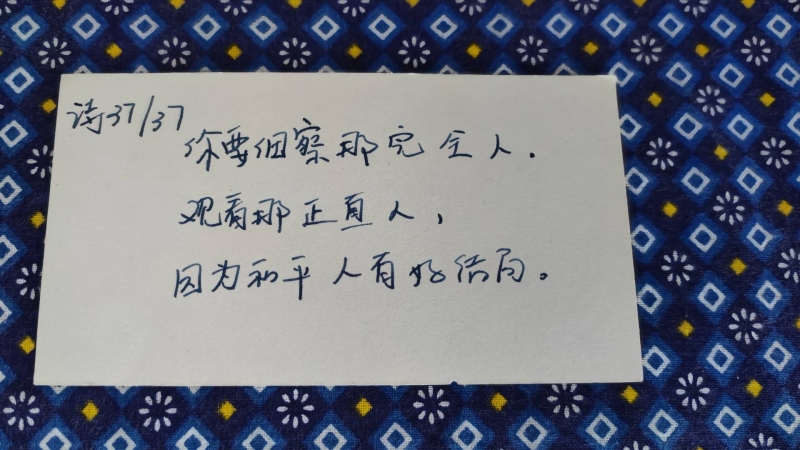 诗37/37
你要细察那完全人.
观看那正直人,
因为和平人有好结局。